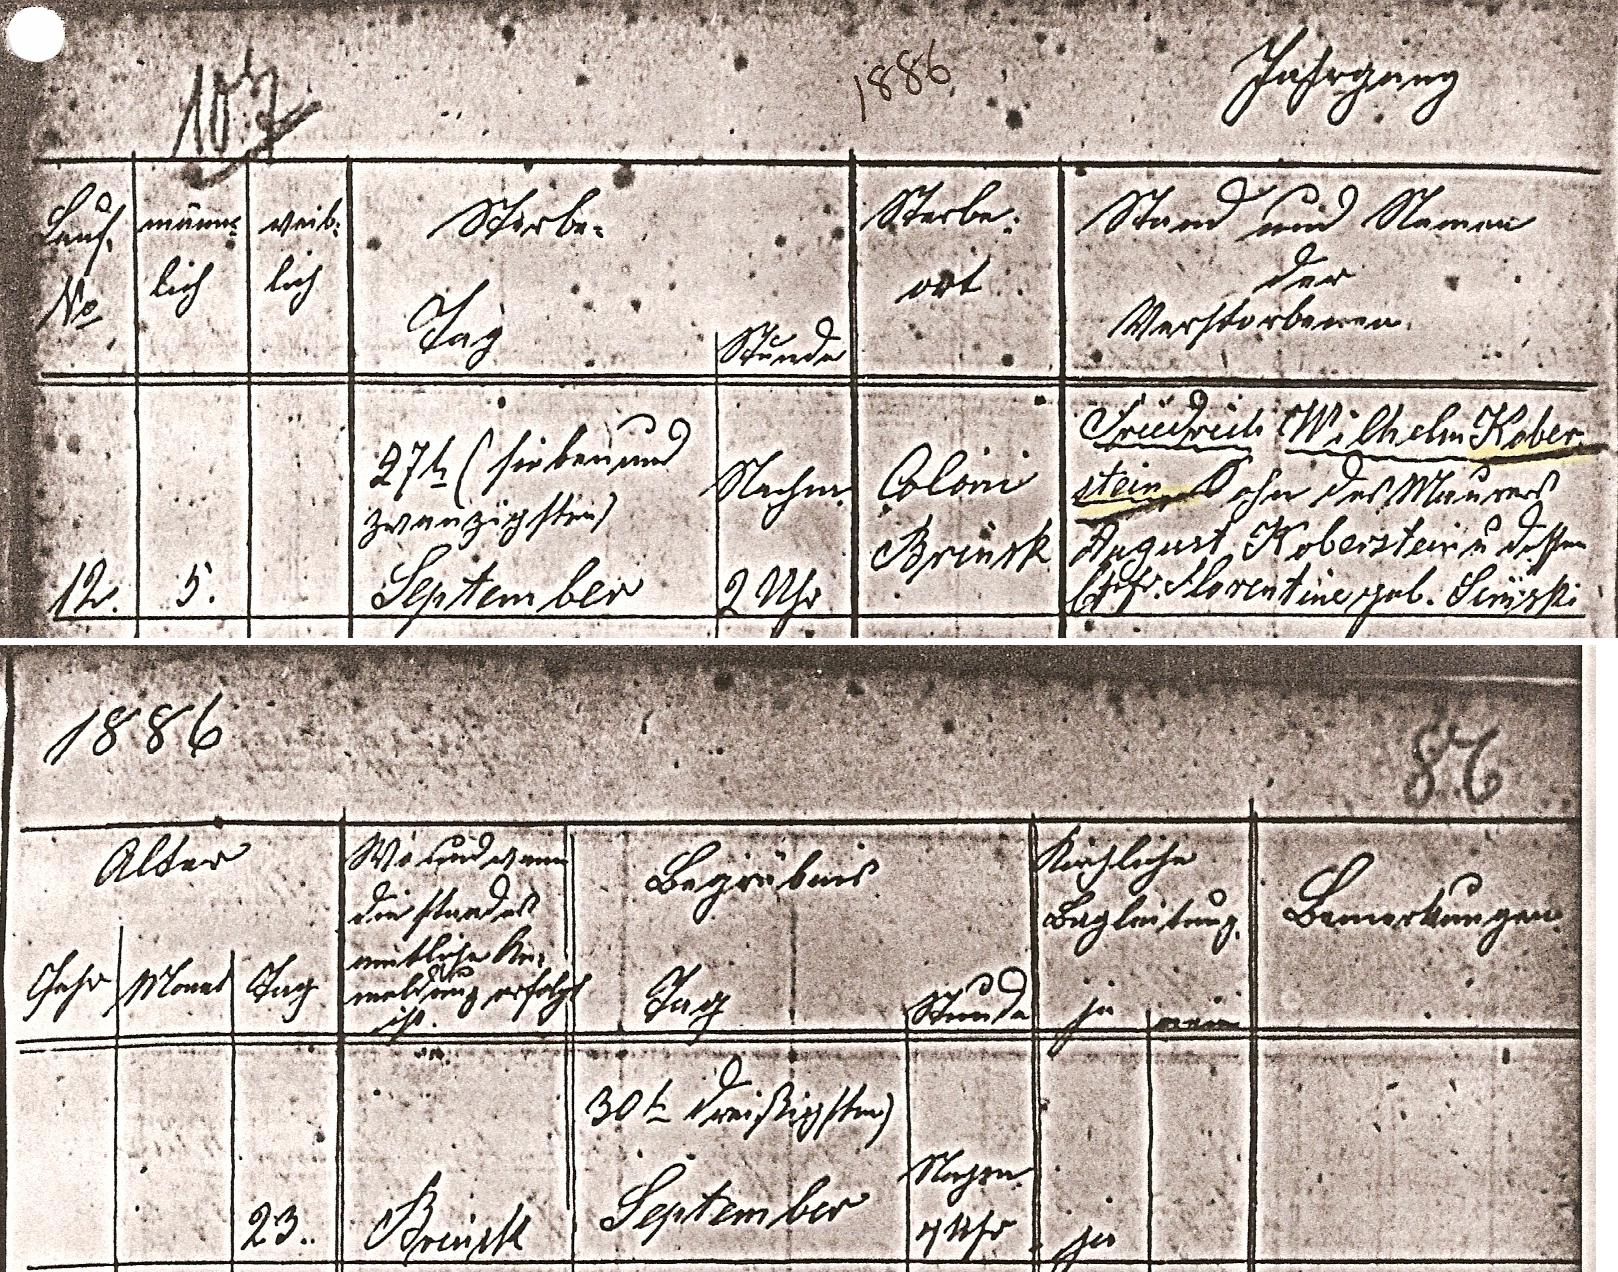 107
1886
Jahrgang
Lauf.
No
männ-
lich
weib-
lich
Sterbe-
Tag
Stunde
Sterbe-
ort
Stand und Namen
der
Verstorbenen.
12.
5.
27t. (siebenund
zwanzigsten)
September
Nachm.
2 Uhr
Coloni
Brinsk
Friedrich Wilhelm Kober-
stein, Sohn des Maurers
August Koberstein u dessen
Ehefr. Florentine geb.
1886
86
Alter
Jahr
Monat
Tag
Wo und wann
die standes
amtliche An-
meldung erfolgt
ist.
Begräbnis
Tag
Stunde
Kirchliche
Begleitung.
ja
nein
Bemerkungen
23.
Brinsk
30t. dreißigsten)
September
Nachm.
Uhr
ja